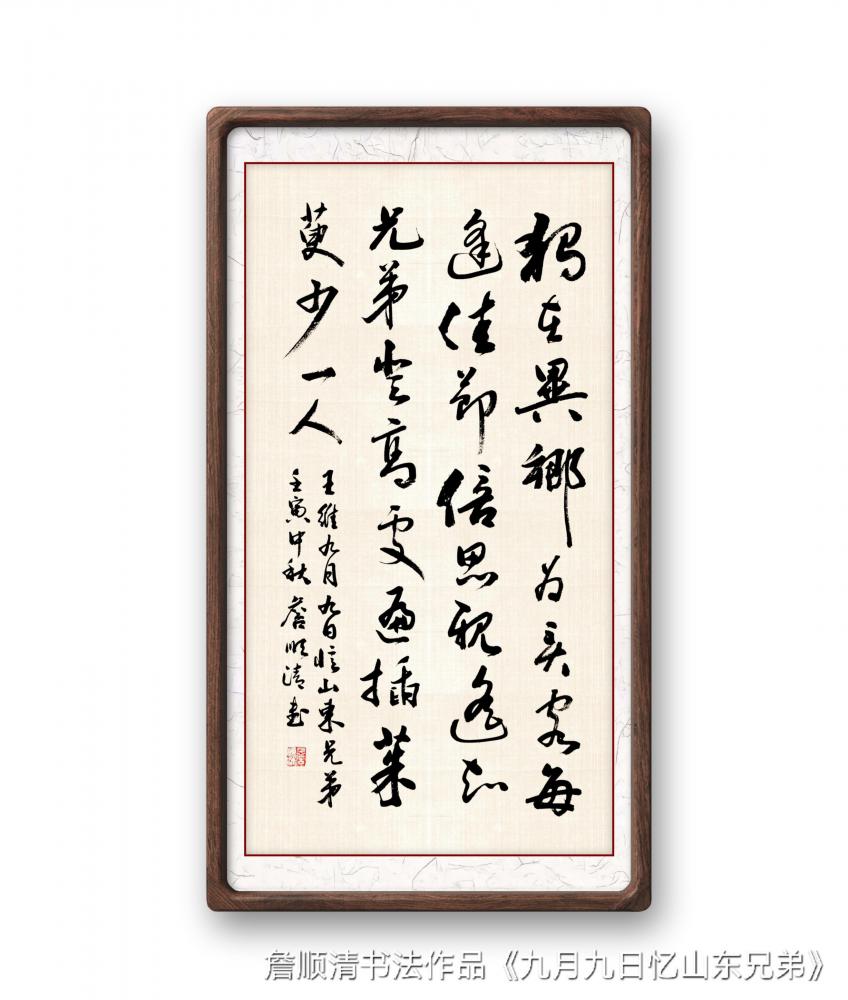 獨在異鄉為異客每
逢佳節倍思親遙知
兄弟登高處遍插茱
萸少一人
王維九月九日憶山東兄弟
壬寅中秋詹順清書
詹顺清书法作品《九月九日忆山东兄弟》